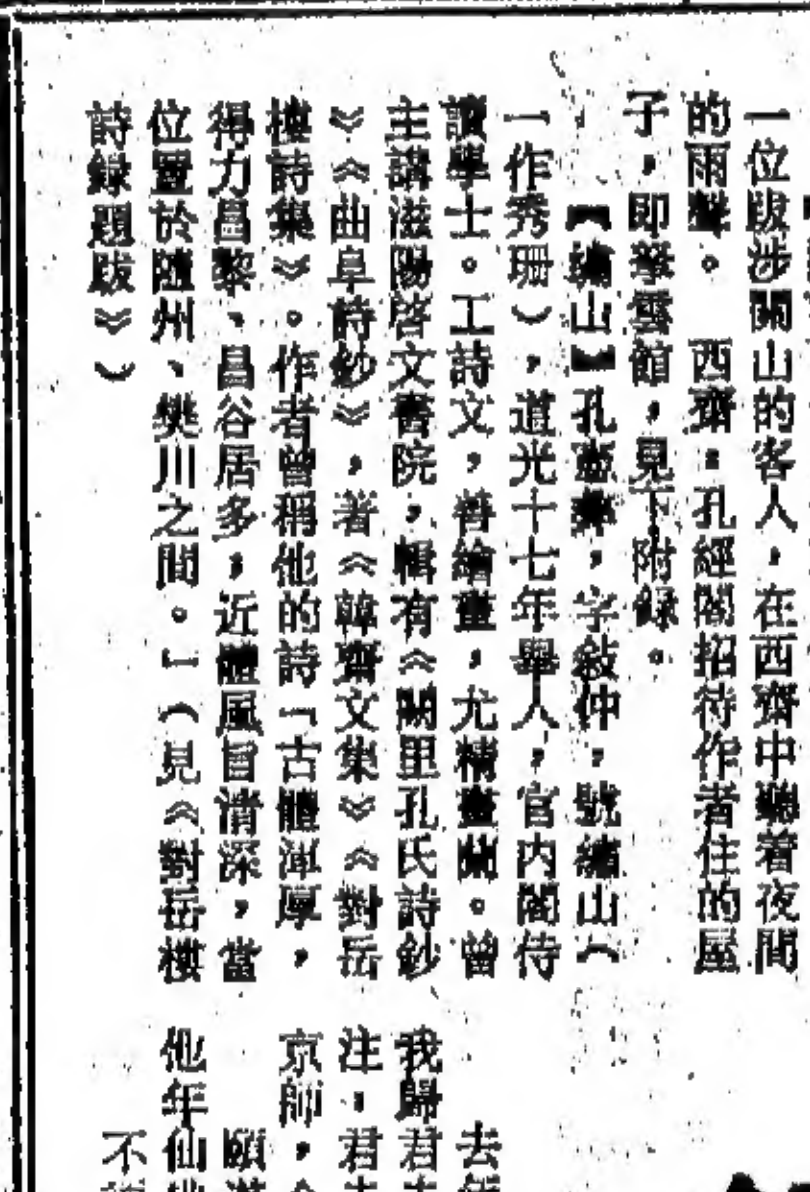 一位跋涉關山的客人，在西齋中聽着夜間
的雨聲。　西齋：孔經閣招待作者住的屋
子，即拏雲館，見下附錄。
【繡山】孔憲彝，字敍仲，號繡山（
一作秀珊），道光十七年舉人，官内閣侍
讀學士。工詩文，善繪畫，尤精畫蘭。曾
主講滋陽啓文書院，輯有《闕里孔氏詩鈔
》《曲阜詩鈔》，著《韓齋文集》《對岳
樓詩集》。作者曾稱他的詩「古體渾厚，
得力昌黎、昌谷居多，近體風旨清深，當
位置於隨州、樊川之間。」（見《對岳樓
詩錄題跋》）
去年
我歸君
注：君
京師，
願遊
他年仙
不